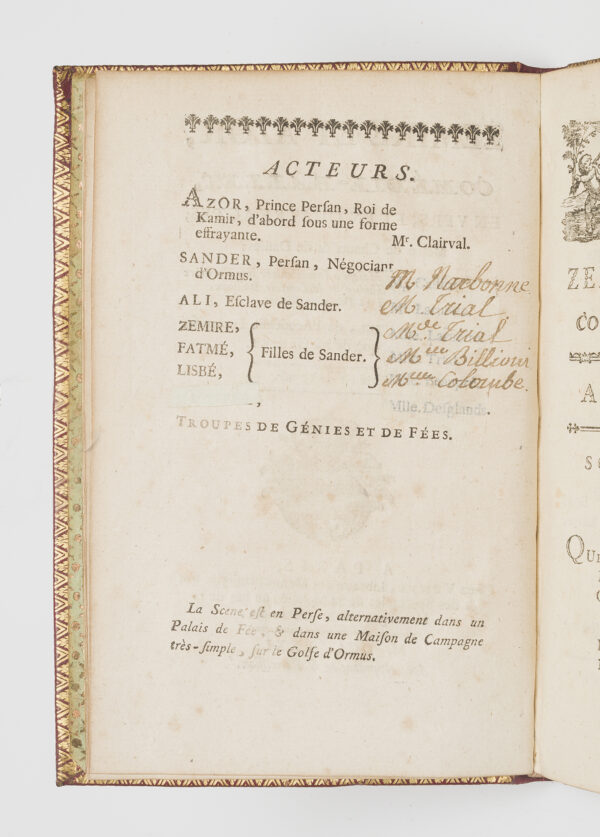 ACTEURS.
AZOR, Prince Perſan, Roi de
Kamir, d'abord ſous une forme
effrayante. Mr. Clairval.
SANDER, Perſan, Négociant
d'Ormus. M Narbonne
ALI, Eſclave de Sander. M Trial
ZEMIRE, Mde Trial
FATMÉ, Filles de Sander. Mlle Billioni
LISBÉ, Mlle Colombe.
Mlle. Deſglands.
TROUPES DE GÉNIES ET DE FÉES.
La Scene eſt en Perſe, alternativement dans un
Palais de Fée, & dans une Maiſon de Campagne
très-ſimple, ſur le Golfe d'Ormus.
ZE
CO
A
S
QU